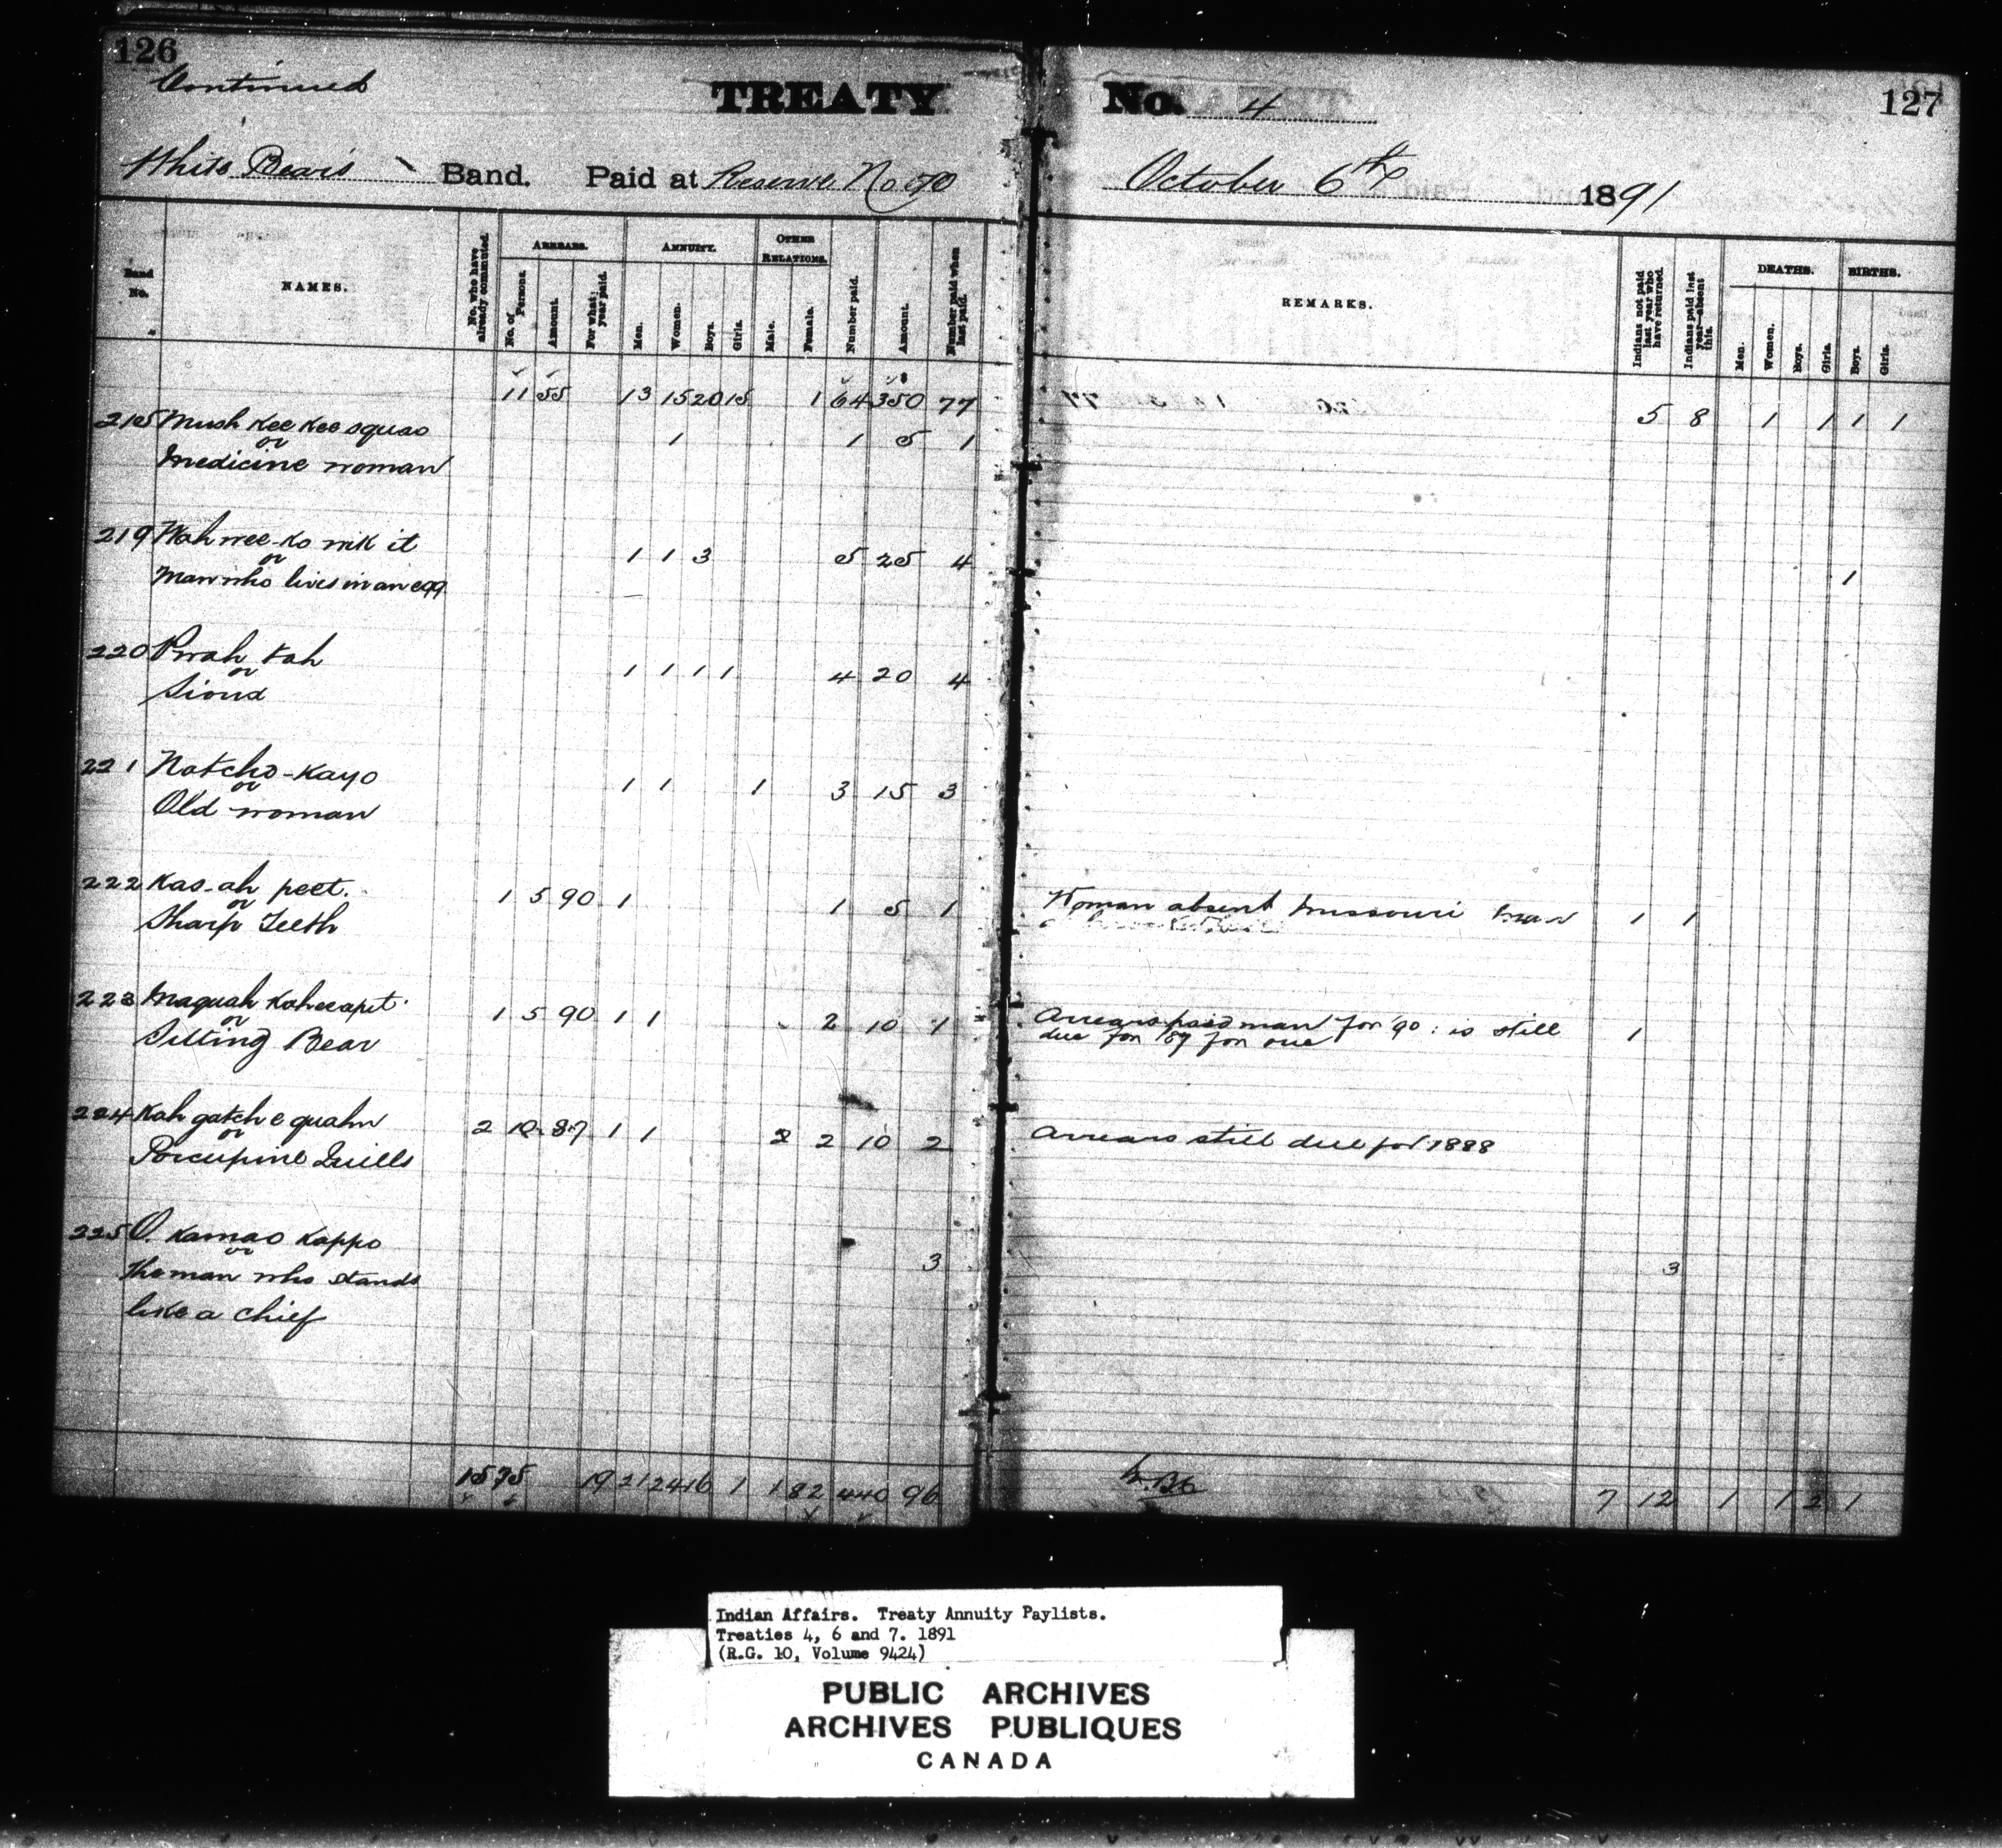 126
Continued
TREATY No. 4
127
White Bear's Band. Paid at Reserve No 70 October 6th 1891
Band No.
NAMES.
No. who have already commuted.
ARREARS.
No. of Persons.
Amount.
For what year paid.
ANNUITY.
Men.
Women.
Boys.
Girls.
OTHER RELATIONS.
Male.
Female.
Number paid.
Amount.
Number paid when last paid.
REMARKS.
Indians not paid last year who have returned.
Indians paid last year—absent this.
DEATHS.
Men.
Women.
Boys.
Girls.
BIRTHS.
Boys.
Girls.
11 55 13 15 20 15 1 64 350 77 5 8 1 1 1 1
215 Mush Kee Kee squao 1 1 5 1
or
Medicine woman
219 Wah wee-ko wik it 1 1 3 5 25 4 1
or
Man who lives in an egg
220 Pwah tah 1 1 1 1 4 20 4
or
Sioux
221 Notcho-Kayo 1 1 1 3 15 3
or
Old woman
222 Kas-ah peet. 1 5 90 1 1 5 1 Woman absent Missouri man 1 1
or
Sharp Teeth
223 Maquah Kaheeapit 1 5 90 1 1 2 10 1 Arrears paid man for '90: is still 1
or
due for '89 for one
Sitting Bear
224 Kah gatch e quahn 2 10 87 1 1 2 2 10 2 Arrears still due for 1888
or
Porcupine Quills
225 O Kamao Kappo 3 3
or
The man who stands
like a chief
15 75 19 21 24 16 1 1 82 440 96 7 12 1 1 2 1
Indian Affairs. Treaty Annuity Paylists.
Treaties 4, 6 and 7. 1891
(R.G. 10, Volume 9424)
PUBLIC ARCHIVES
ARCHIVES PUBLIQUES
CANADA